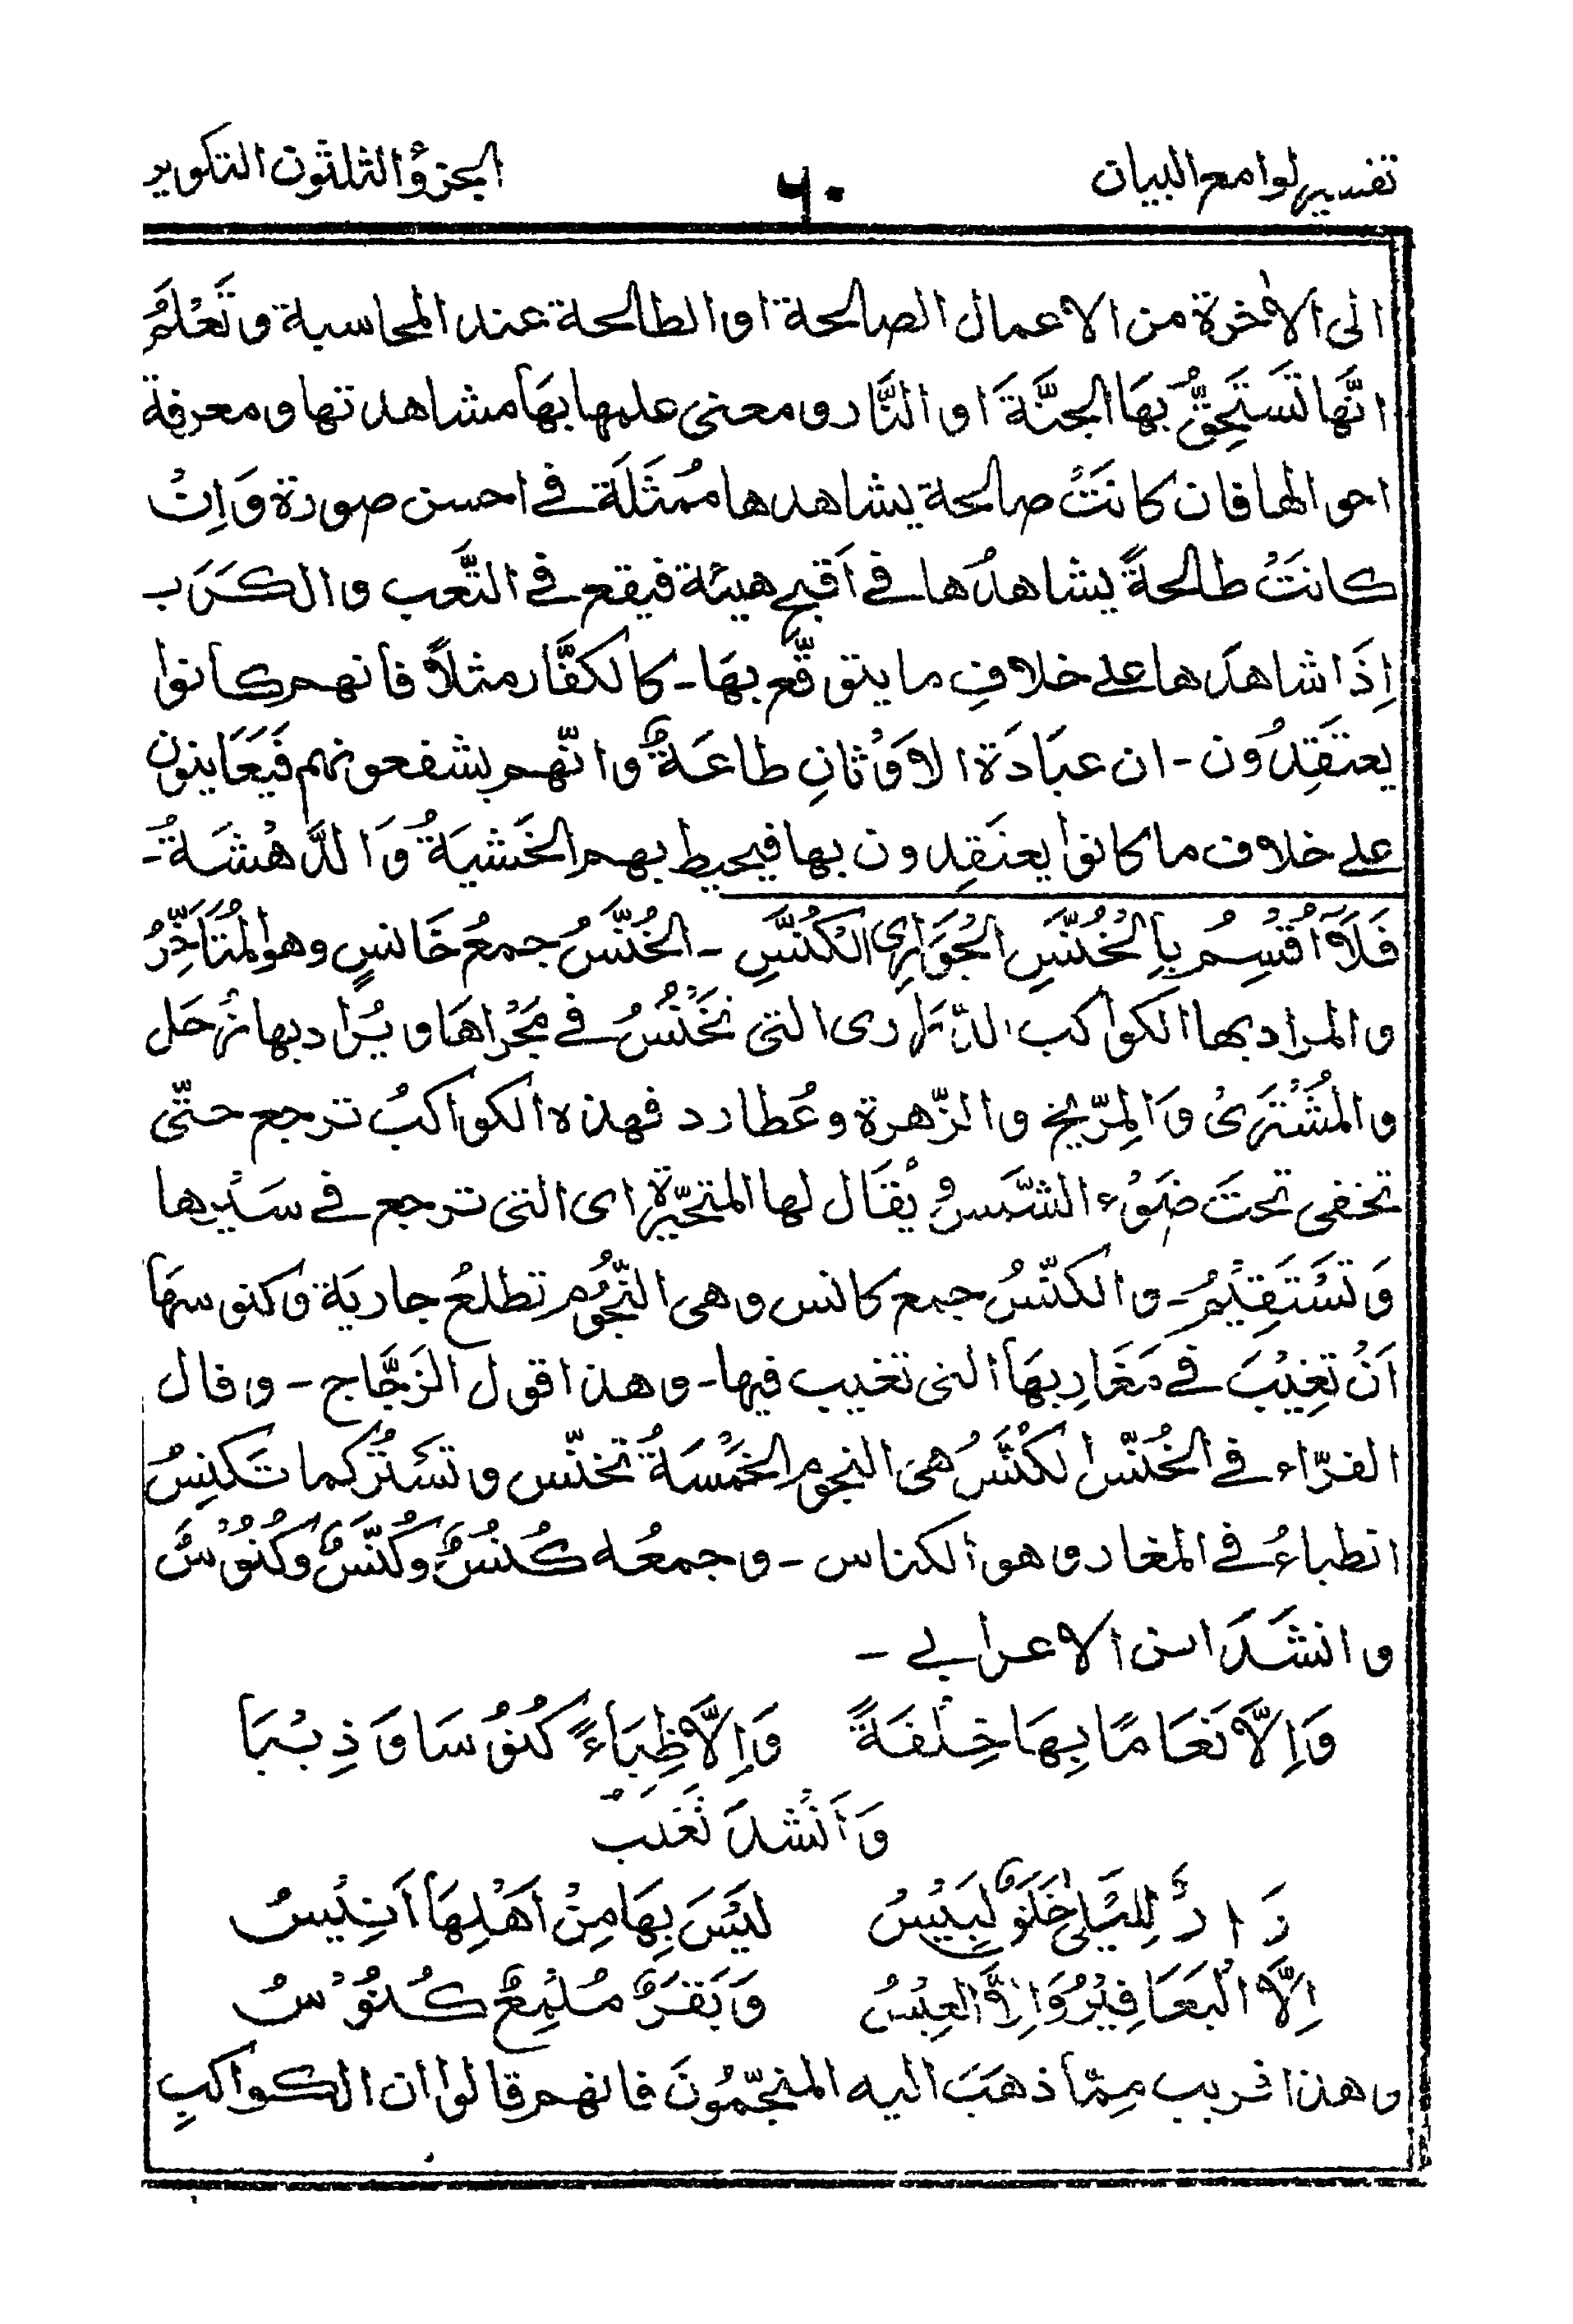 تفسير لوامع البيان ٦٠ الجزؤ الثلثون التكوير
الى الاٰخرة من الاعمال الصالحة او الطالحة عند المحاسبة و تَعْلَمُ
انَّها تَستَحِقُّ بهَا الجنَّةَ او النَّار و معنى علمها بهَا مشاهدتها و معرفة
احوالها فان كانَتْ صالحة يشاهدها ممُثَلَة فے احسن صورة وَاِنْ
كانَتْ طالحةً يشاهدُها فے اَقبحِ هيئة فيقع فے التَّعب والكَرَب
اِذَا شاهدَها علے خلافِ ما يتوقَّع بهَا ـ كالكفَّار مثلاً فانهم كانوا
يعتَقِدُون ـ ان عبَادَة الاَوْثانِ طاعَةٌ وانّهم يشفعونهم فَيَعَاينون
علے خلاف ما كانوا يعتَقِدون بها فيحيط بهم الخَشيَةُ وَالدَّهْشَةُ ـ
فَلَآ اُقْسِمُ بِالْخُنَّسِ الْجَوَارِى الْكُنَّسِ ـ الخُنَّسُ جمعُ خَانسٍ وهو المُتَأخِّرُ
و المراد بها الكواكب الدّرارى التى تَخْنُسُ فے مَجْراهَا و يُراد بها زُحَل
و المُشْتَرِىْ وَالمِرّيخ و الزّهرة و عُطارد فهذه الكواكبُ ترجع حتّى
تخفى تحتَ ضَوْء الشَّمسِ و يُقَال لها المتحيّرة اى التى ترجع فے سَيْرِها
وَ تَسْتَقِيْمُ ـ و الكنّسُ جمع كانس و هى النّجُوم تطلعُ جاريَة و كنوسهَا
اَنْ تغِيْبَ فے مَغَارِبهَا التى تغيب فيها ـ و هذا قول الزَجَّاج ـ و قال
الفرّاء فے الخُنَّس الكُنَّسُ هى النجوم الخَمْسَةُ تخنّس و تَستُرْ كما تَكنِسُ
الظباءُ فے المغار و هو الكناس ـ و جمعُه كُنُسٌ وكُنَّسٌ وكُنُوْسٌ
و انشَدَ ابن الاعرابے ـ
وَاِلَّا نَعَامًا بِهَا خِلْفَةً وَاِلَّا ظِبَاءً كُنُوْسَا وَ ذِبْبَا
وَ اَنْشَدَ ثَعْلَبٌ
دَارٌ لِلَيْلٰى خَلَقٌ لَبِيْسُ لَيْسَ بِهَا مِنْ اَهْلِهَا اَنِيْسُ
اِلَّا الْيَعَافِيْرُ وَاِلَّا الْعِيْسُ وَ بَقَرٌ مُلْمِعٌ كُنُوْسُ
و هذا قريب مِمّا ذهَبَ اليه المنجّمُونَ فانهم قالوا ان الكواكبِ